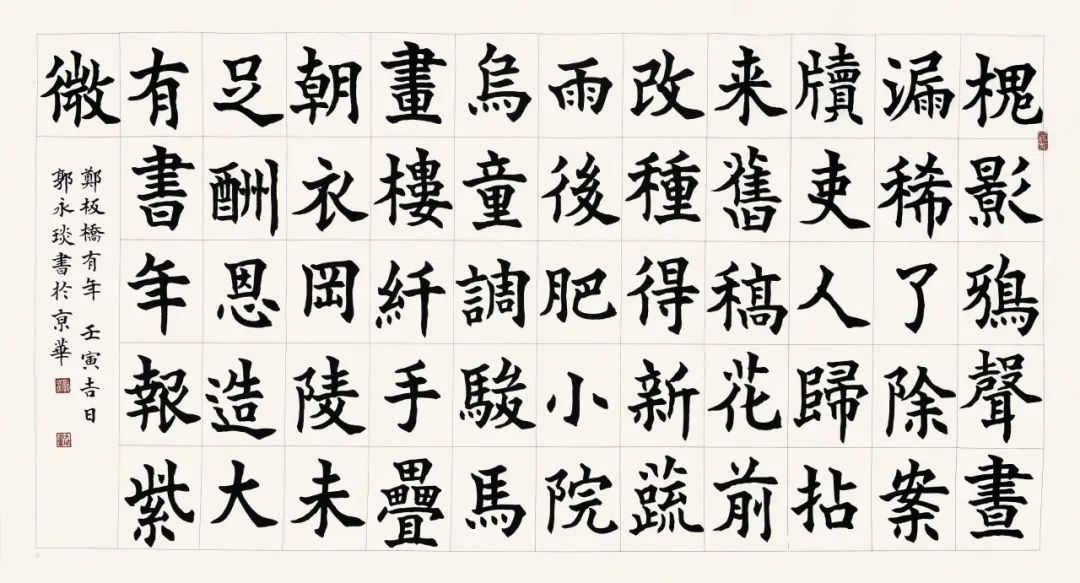 槐影鴉聲晝
漏稀了除案
牘吏人歸拈
来舊稿花前
改種得新蔬
雨後肥小院
烏童調駿馬
畫樓纤手疊
朝衣岡陵未
足酬恩造大
有書年報紫
微
鄭板橋有年 壬寅吉日
郭永琰書於亰華